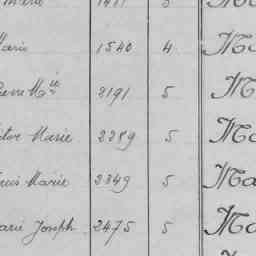 Marie 1411 5
Marie 1540 4 Ma
Pierre Mie 2191 5 M
Victor Marie 2289 5 Ma
Louis Marie 2349 5 Ma
Marie Joseph 2475 5 Ma